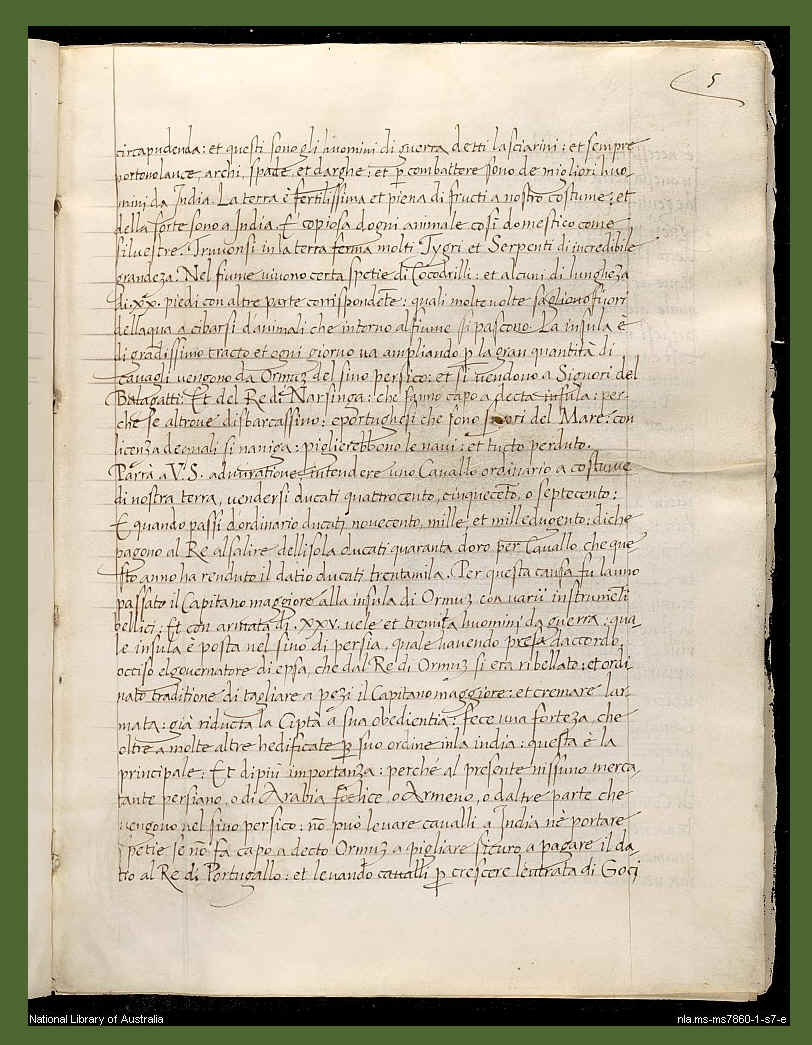 5
circapudenda: et questi sono gli huomini di guerra detti lasciarini: et sempre
portono lance, archi, spade, et darghe: et p combattere sono de migliori huo,
mini da India. La terra è fertilissima et piena di fructi a nostro costume: et
della sorte sono a India. E' copiosa dogni animale così domestico come
silvestre. Truvonsi in la terra ferma molti Tygri et Serpenti di incredibile
grandeza. Nel fiume vivono certa spetie di Cocodrilli: et alcuni di lungheza
di .XX. piedi con altre parte corrispondete: quali molte volte sagliono fuori
dellaqua a cibarsi danimali che intorno al fiume si pascono. La insula è
di gradissimo tracto et ogni giorno va ampliando p la gran quantità di
cavagli vengono da Ormuz del sino persico: et si vendono a Signori del
Balagatti: Et del Re di Narsinga: che fanno capo a decta insula: per-
che se altrove disbarcassino: e portughesi che sono del Mare: con
licenza de quali si naviga: piglierebbono le navi: et tucto perduto.
Parrà a V. S. intendere uno Cavallo ordinario a costume
di nostra terra, vendersi ducati quattrocento, cinqueceto, o septecento:
E quando passi dordinario ducati novecento, mille, et milledugento: diche
pagono al Re alsalire dellisola ducati quaranta doro per Cavallo, che que
sto anno ha renduto il datio ducati trentamila. Per questa causa fu lanno
passato il Capitano maggiore alla insula di Ormuz con varii instrumeti
bellici: Et con armata di .XXV. vele et tremila huomini da guerra: qua
le insula è posta nel sino di persia, quale havendo presa daccordo,
occiso el governatore di epsa, che dal Re di Ormuz si era ribellato: et ordi
nato traditione di tagliare a pezi il Capitano maggiore: et cremare lar
mata: già riducta la Ciptà a sua obedientia: fece una forteza, che
oltre a molte altre hedificate p suo ordine in la india: questa è la
principale: Et di più importanza: perché al presente nissuno merca
tante persiano, o di Arabia foelice, o Armeno, o daltre parte che
vengono nel sino persico: no può levare cavalli a India nè portare
spetie se no fa capo a decto Ormuz a pigliare sicuro a pagare il da
tio al Re di Portugallo: et levando cavalli p crescere lentrata di Goci
National Library of Australia
nla.ms-ms7860-1-s7-e